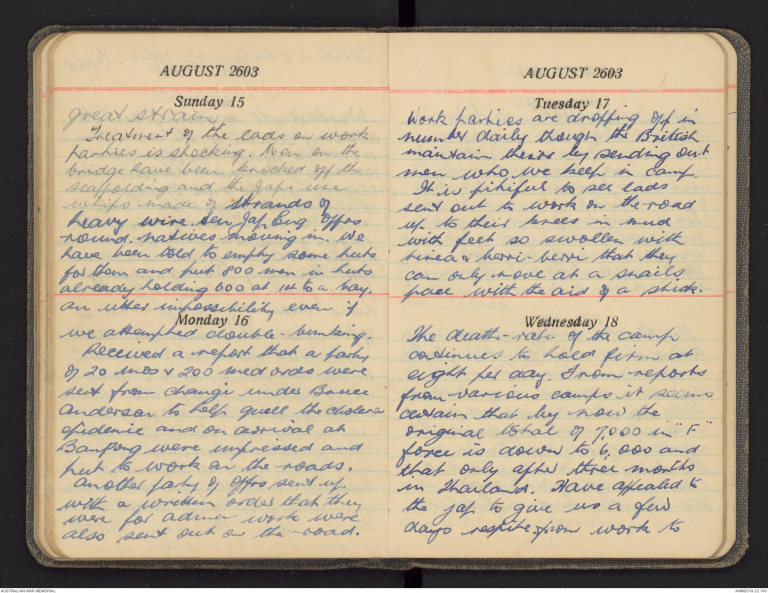 AUGUST 2603
Sunday 15
great strain.
Treatment of the lads on work
parties is shocking. Men on the
bridge have been knocked off the
scaffolding and the Japs use
whips made of strands of
heavy wire. Ten Jap Eng. offrs
round. natives moving in. We
have been told to empty some huts
for them and put 800 men in huts
already holding 600 at 14 to a bay.
an utter impossibility even if
Monday 16
we attempted double-bunking.
Received a report that a party
of 20 MOs & 200 med ords were
sent from Changi under Bruce
Anderson to help quell the cholera
epidemic and on arrival at
Banpong were impressed and
put to work on the roads.
Another party of offrs sent up
with a written order that they
were for admin work were
also sent out on the road.
AUGUST 2603
Tuesday 17
Work parties are dropping off in
number daily though the British
maintain theirs by sending out
men who we keep in camp.
It is pitiful to see lads
sent out to work on the road
up to their knees in mud
with feet so swollen with
tinea & berri-berri that they
can only move at a snails
pace with the aid of a stick.
Wednesday 18
The death-rate of the camp
continues to hold firm at
eight per day. From reports
from various camps it seems
certain that by now the
original total of 7,000 in "F"
force is down to 6,000 and
that only after three months
in Thailand. Have appealed to
the jap to give us a few
days respite from work to
AUSTRALIAN WAR MEMORIAL